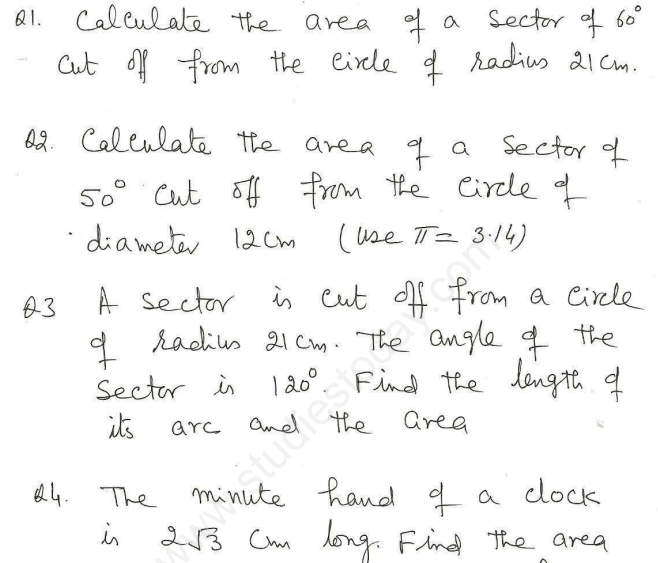 Q1. Calculate the area of a Sector of 60°
Cut off from the Circle of radius 21cm.
Q2. Calculate the area of a Sector of
50° Cut off from the Circle of
diameter 12cm (use π = 3.14)
Q3 A Sector is cut off from a Circle
of radius 21cm. The angle of the
Sector is 120°. Find the length of
its arc and the area
Q4. The minute hand of a clock
is 2√3 Cm long. Find the area
www.studiestoday.com